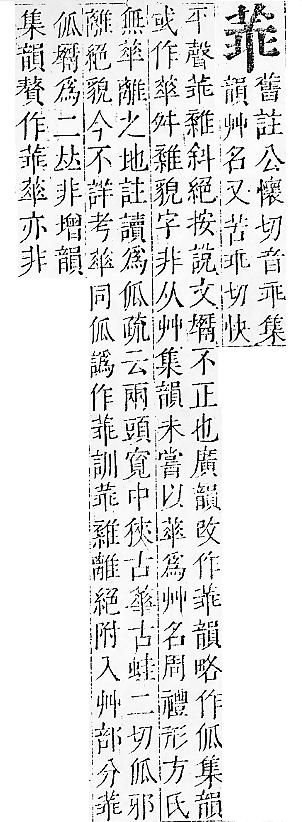 舊註公懷切音乖集
韻艸名又苦乖切快
平聲斜絕按說文竵不正也廣韻改作韻略作集韻
或作華舛貌字非从艸集韻未嘗以華爲艸名周禮形方氏
無華離之地註讀爲疏云兩頭寬中狹古華古蛙二切邪
離絕貌今不詳考華同譌作訓離絕附入艸部分
竵爲二𠀤非增韻
集韻贅作華亦非